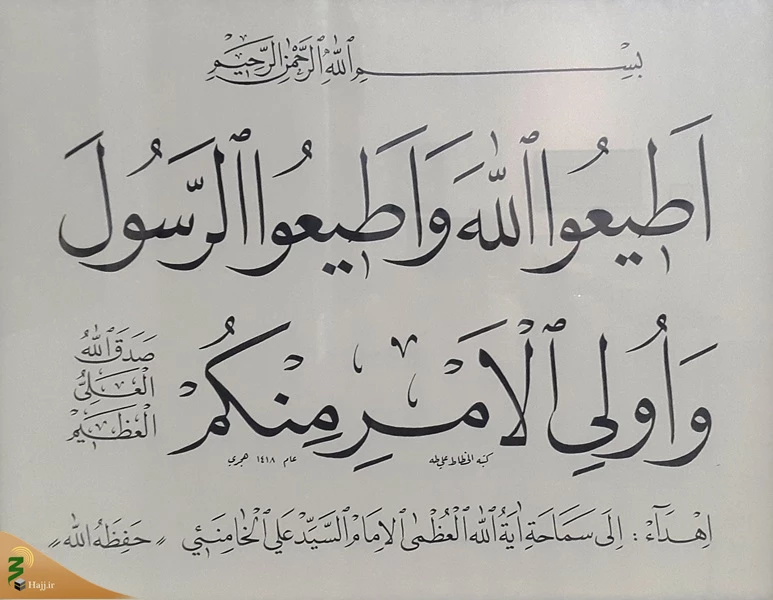 بِسْمِ اللهِ الرَّحْمٰنِ الرَّحِيمِ
اَطِيعُوا اللهَ وَاَطِيعُوا الرَّسُولَ
وَاُولِي الْاَمْرِ مِنْكُمْ
صَدَقَ اللهُ
الْعَلِيُّ
الْعَظِيمُ
كتبه الخطاط علي طه
عام ١٤١٨ هجري
اِهْدَآءْ : اِلَى سَمَاحَةِ اٰيَةُ اللهِ الْعُظْمٰى الاِمَامْ السَّيِّدْ عَلِي الْخَامِنَئِي " حَفِظَهُ اللهْ "
Hajj.ir